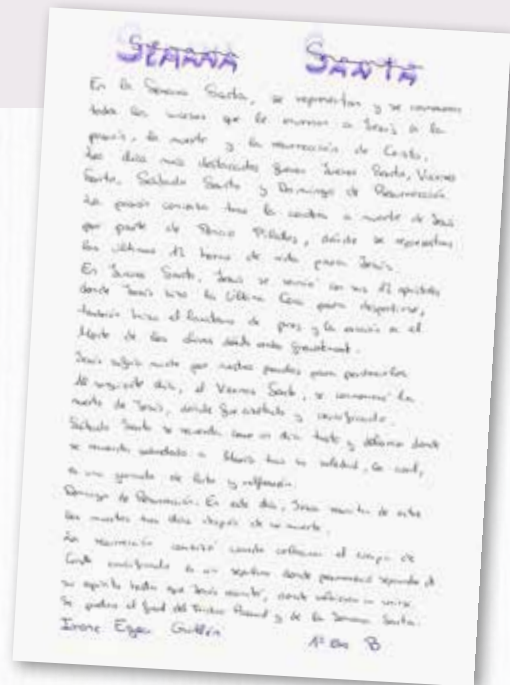 SEMANA SANTA
En la Semana Santa, se representan y se conmemoran
todos los sucesos que le a Jesús a la
pasión, la muerte y la resurrección de Cristo.
Los días más destacados Jueves Santo, Viernes
Santo, Sábado Santo y Domingo de Resurrección.
La pasión consiste tras la a muerte de Jesús
por parte de Poncio Pilatos, donde se representan
las últimas 12 horas de vida para Jesús.
En Jueves Santo, Jesús se reunió con sus 12 apóstoles
donde Jesús hizo la Última Cena para despedirse,
también hizo el de pies y la oración en el
Monte de los Olivos donde
Jesús sufrió mucho por nuestros pecados para perdonarlos
Al siguiente día, el Viernes Santo, se conmemora la
muerte de Jesús, donde fue y crucificado.
Sábado Santo se recuerda como un día triste y donde
se recuerda a María tras su soledad, la cual,
es una jornada de luto y reflexión.
Domingo de Resurrección. En este día, Jesús resucita de entre
los muertos tres días después de su muerte.
La resurrección cuando colocaron el cuerpo de
Cristo crucificado en un sepulcro donde permaneció separado de
su espíritu hasta que Jesús resucitó, donde volvieron a unirse.
Se produce el final del Triduo Pascual y de la Semana Santa.
Irene Egea Guillén 1º Eso B